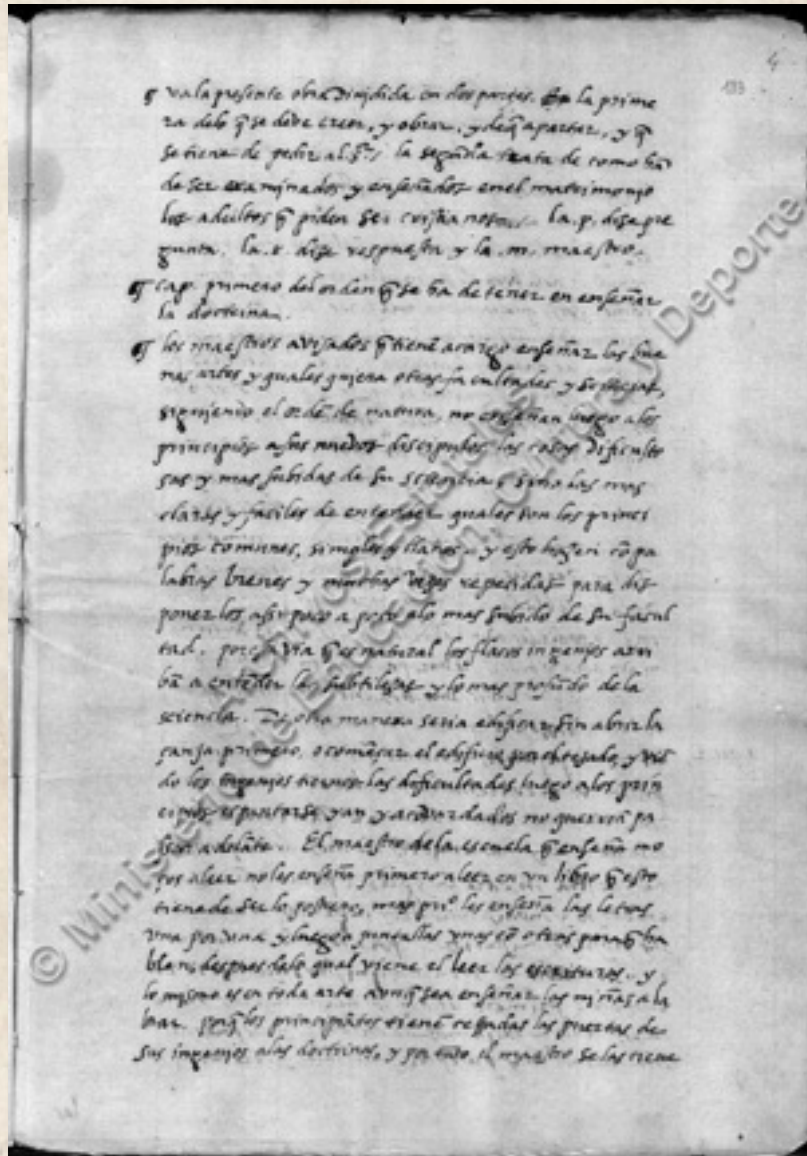 4
133
va la presente obra diujdida en dos partes. En la prime
ra delo q̃ se deue creer, y obrar, y de q̃ apartar, y q̃
se tiene de pedir al s.ʳ; la segũda trata de como hã
de ser examinados y enseñados enel matrimonio
los adultos q̃ piden ser xp̃ianos la .p. dize pre
gunta. la .r. dize respuesta y la .m. maestro.
cap. primero del orden q̃ se ha de tener en enseñar
la doctrina.
los maestros auisados q̃ tienẽ acargo enseñar las bue
nas artes y quales quiera otras facultades
siguiendo el ordẽ de natura, no enseñan luego alos
principios a sus nueuos discipulos las cosas dificulto
sas y mas subidas de su sciẽtia sino las mas
claras y faciles de entender quales son los princi
pios comunes, simples y llanos. y esto hazen cõ pa
labras breues y muchas vezes repetidas para dis
poner los asi poco a poco alo mas subido de su facul
tad. por esta via q̃ es natural los flacos ingenios arri
bã a entẽder las subtilezas y lo mas profũdo de la
sciencia. De otra manera seria edificar sin abrir la
çanja primero, o comẽçar el edificio por el tejado, y viẽ
do los ingenios tiernos las dificultades luego alos prin
cipios espantarse yan y acouardados no querriã pa
sar adelãte. El maestro dela escuela q̃ enseña mo
ços aleer noles enseña primero aleer en vn libro q̃ esto
tiene de ser lo postrero, mas pri.º les enseña las letras
vna por vna y luego a juntallas vnas cõ otras
blan, despues delo qual viene el leer las escrituras. y
lo mismo es en toda arte aunq̃ sea enseñar las niñas a la
brar. porq̃ los principiãtes tienẽ cerradas las puertas de
sus ingenios alas doctrinas, y por tãto el maestro se las tiene
© Ministerio de Educación, Cultura y Deporte
Archivos Estatales